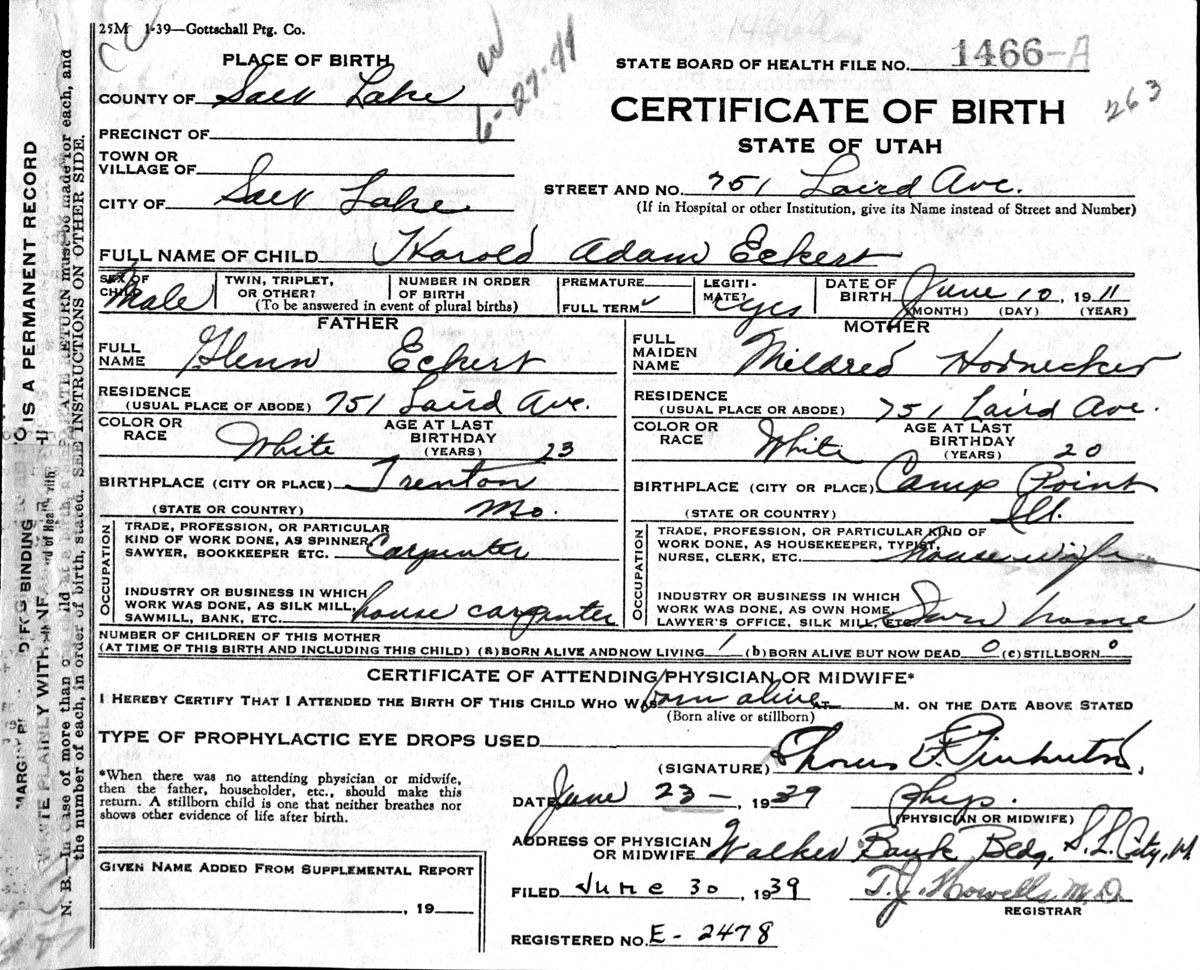 25M 1-39—Gottschall Ptg. Co.
PLACE OF BIRTH
COUNTY OF Salt Lake
PRECINCT OF
TOWN OR
VILLAGE OF
CITY OF Salt Lake
6-27-41
STATE BOARD OF HEALTH FILE NO. 1466-A
263
CERTIFICATE OF BIRTH
STATE OF UTAH
STREET AND NO. 751 Laird Ave.
(If in Hospital or other Institution, give its Name instead of Street and Number)
FULL NAME OF CHILD Harold Adam Eckert
SEX OF CHILD Male
TWIN, TRIPLET, OR OTHER?
NUMBER IN ORDER OF BIRTH
(To be answered in event of plural births)
PREMATURE
FULL TERM ✓
LEGITIMATE? yes
DATE OF BIRTH June 10, 1911
(MONTH) (DAY) (YEAR)
FATHER
FULL NAME Glenn Eckert
RESIDENCE
(USUAL PLACE OF ABODE) 751 Laird Ave.
COLOR OR RACE White
AGE AT LAST BIRTHDAY (YEARS) 23
BIRTHPLACE (CITY OR PLACE) Trenton
(STATE OR COUNTRY) Mo.
OCCUPATION
TRADE, PROFESSION, OR PARTICULAR
KIND OF WORK DONE, AS SPINNER,
SAWYER, BOOKKEEPER ETC. Carpenter
INDUSTRY OR BUSINESS IN WHICH
WORK WAS DONE, AS SILK MILL,
SAWMILL, BANK, ETC. house carpenter
MOTHER
FULL MAIDEN NAME Mildred Hornecker
RESIDENCE
(USUAL PLACE OR ABODE) 751 Laird Ave.
COLOR OR RACE White
AGE AT LAST BIRTHDAY (YEARS) 20
BIRTHPLACE (CITY OR PLACE) Camp Point
(STATE OR COUNTRY) Ill.
OCCUPATION
TRADE, PROFESSION, OR PARTICULAR KIND OF
WORK DONE, AS HOUSEKEEPER, TYPIST,
NURSE, CLERK, ETC. housewife
INDUSTRY OR BUSINESS IN WHICH
WORK WAS DONE, AS OWN HOME,
LAWYER'S OFFICE, SILK MILL, ETC. Own home
NUMBER OF CHILDREN OF THIS MOTHER
(AT TIME OF THIS BIRTH AND INCLUDING THIS CHILD) (a) BORN ALIVE AND NOW LIVING 1 (b) BORN ALIVE BUT NOW DEAD 0 (c) STILLBORN 0
CERTIFICATE OF ATTENDING PHYSICIAN OR MIDWIFE*
I HEREBY CERTIFY THAT I ATTENDED THE BIRTH OF THIS CHILD WHO WAS born alive AT M. ON THE DATE ABOVE STATED
(Born alive or stillborn)
TYPE OF PROPHYLACTIC EYE DROPS USED
*When there was no attending physician or midwife,
then the father, householder, etc., should make this
return. A stillborn child is one that neither breathes nor
shows other evidence of life after birth.
(SIGNATURE)
DATE June 23-, 1939
Phys.
(PHYSICIAN OR MIDWIFE)
ADDRESS OF PHYSICIAN
OR MIDWIFE Walker Bank Bldg. S. L. City, U.
GIVEN NAME ADDED FROM SUPPLEMENTAL REPORT
, 19
FILED June 30, 1939
T. J. Howells M.D.
REGISTRAR
REGISTERED NO. E-2478
IS A PERMANENT RECORD
N. B.—In case of more than
the number of each, in order of birth, stated. SEE INSTRUCTIONS ON OTHER SIDE.